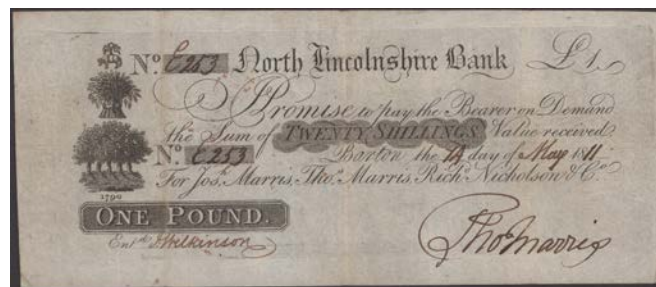 No. E253 North Lincolnshire Bank £1
I Promise to pay the Bearer on Demand
the Sum of TWENTY SHILLINGS Value received
No. E253 Barton the 14 day of May 1811
For Josh. Marris, Thos. Marris, Richd. Nicholson & Co.
1790
ONE POUND.
Entd. JWilkinson
Tho Marris